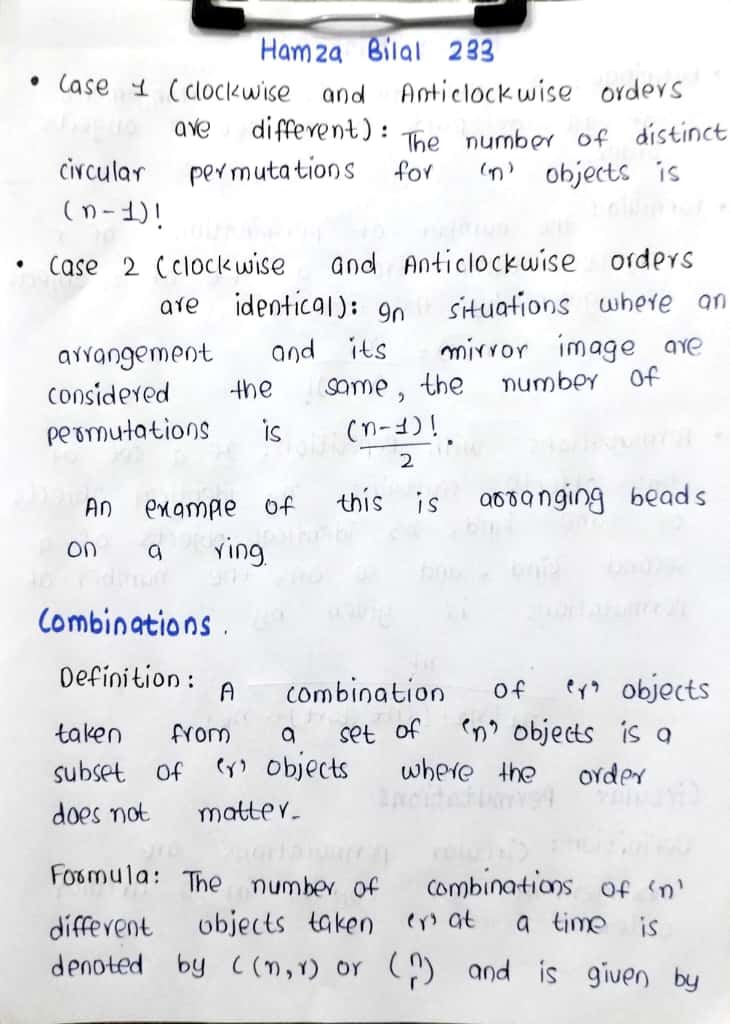 Hamza Bilal 233
• Case 1 (clockwise and Anticlockwise orders
are different): The number of distinct
circular permutations for 'n' objects is
(n-1)!
• Case 2 (clockwise and Anticlockwise orders
are identical): In situations where an
arrangement and its mirror image are
considered the same, the number of
permutations is (n-1)!/2.
An example of this is arranging beads
on a ring.
Combinations.
Definition: A combination of 'r' objects
taken from a set of 'n' objects is a
subset of 'r' objects where the order
does not matter.
Formula: The number of combinations of 'n'
different objects taken 'r' at a time is
denoted by C(n,r) or (n r) and is given by